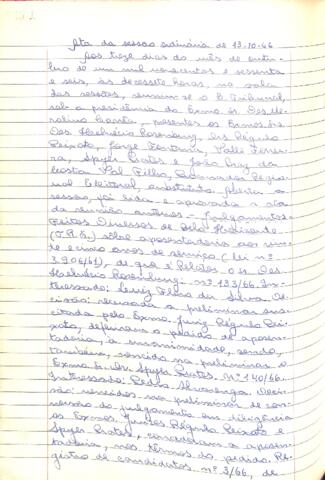 Ata da sessão ordinária de 13-10-66
Aos treze dias do mês de outu-
bro de um mil novecentos e sessenta
e seis, às dezessete horas, na sala
das sessões, reuniu-se o E. Tribunal,
sob a presidência do Exmo. Sr. Des.
Costa, presentes os Exmos. Srs.
Des. Helvécio Rosenburg, Drs. Régulo
Peixoto, Jorge Fontana, Valle Ferrei-
ra, Spyer Prates e João Luiz da
Costa Val Filho, Procurador Regio-
nal Eleitoral, substituto. Aberta a
sessão, foi lida e aprovada a ata
da reunião anterior. - Julgamentos -
Feitos Diversos de Belo Horizonte
(T.R.E.) sôbre aposentadoria aos vin-
te e cinco anos de serviço (lei nº
3.906/61), de que é Relator o Sr. Des.
Helvécio Rosenburg. nº 133/66. In-
teressado: da Silva. De-
cisão: a preliminar sus-
citada pelo Exmo. Juiz Régulo Pei-
xoto, deferiram o pedido de aposen-
tadoria, à unanimidade, sendo,
também, vencido na preliminar o
Exmo. Sr. Dr. Spyer Prates. Nº 140/66.
Interessado: Pedro Alvarenga. Deci-
são: vencidos na preliminar de con-
versão do julgamento em diligência
os Exmos. Juízes Régulo Peixoto e
Spyer Prates, concederam a aposen-
tadoria, nos têrmos do pedido. Re-
gistro de candidatos nº 3/66, de